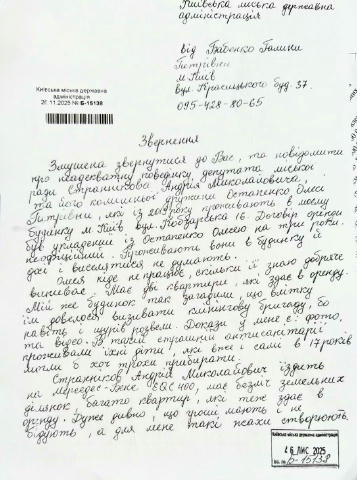 Київська міська державна
адміністрація
від Бабенко Галини
Петрівни
м Київ
вул. Красицького буд. 37.
095-428-80-65
Київська міська державна
адміністрація
26.11.2025 № Б-15138
Звернення
Змушена звернутися до Вас, та повідомити
про неадекватну поведінку, депутата міської
ради Страннікова Андрія Миколайовича,
та його колишньої дружини Остапенко Олесі
Петрівни, які із 2019 року проживають в моєму
будинку м Київ вул. Кобзарська 16. Договір оренди
був укладений із Остапенко Олесею на три роки.
неофіційний. Проживають вони в будинку й
досі і виселятися не думають.
Олеся ніде не працює, скільки її знаю добряче
випиває. Має дві квартири, які здає в оренду.
Мій же будинок так загадили, що влітку
їм довелося визивати клінінгову бригаду, бо
навіть і щурів розвели. Докази у мене є: фото,
та відео. В такій страшній антисанітарії
проживали їхні діти, які вже і самі в 17 років
могли б хоч трохи прибирати.
Странніков Андрій Миколайович їздить
на мерседес-Бенс EQC 400, має безліч земельних
ділянок, багато квартир, які теж здає в
оренду. Дуже дивно, що гроші мають і не
бідують, а для мене такі псахи створюють
Київська міська державна адміністрація
26 ЛИС 2025
Вх. № Б-15138